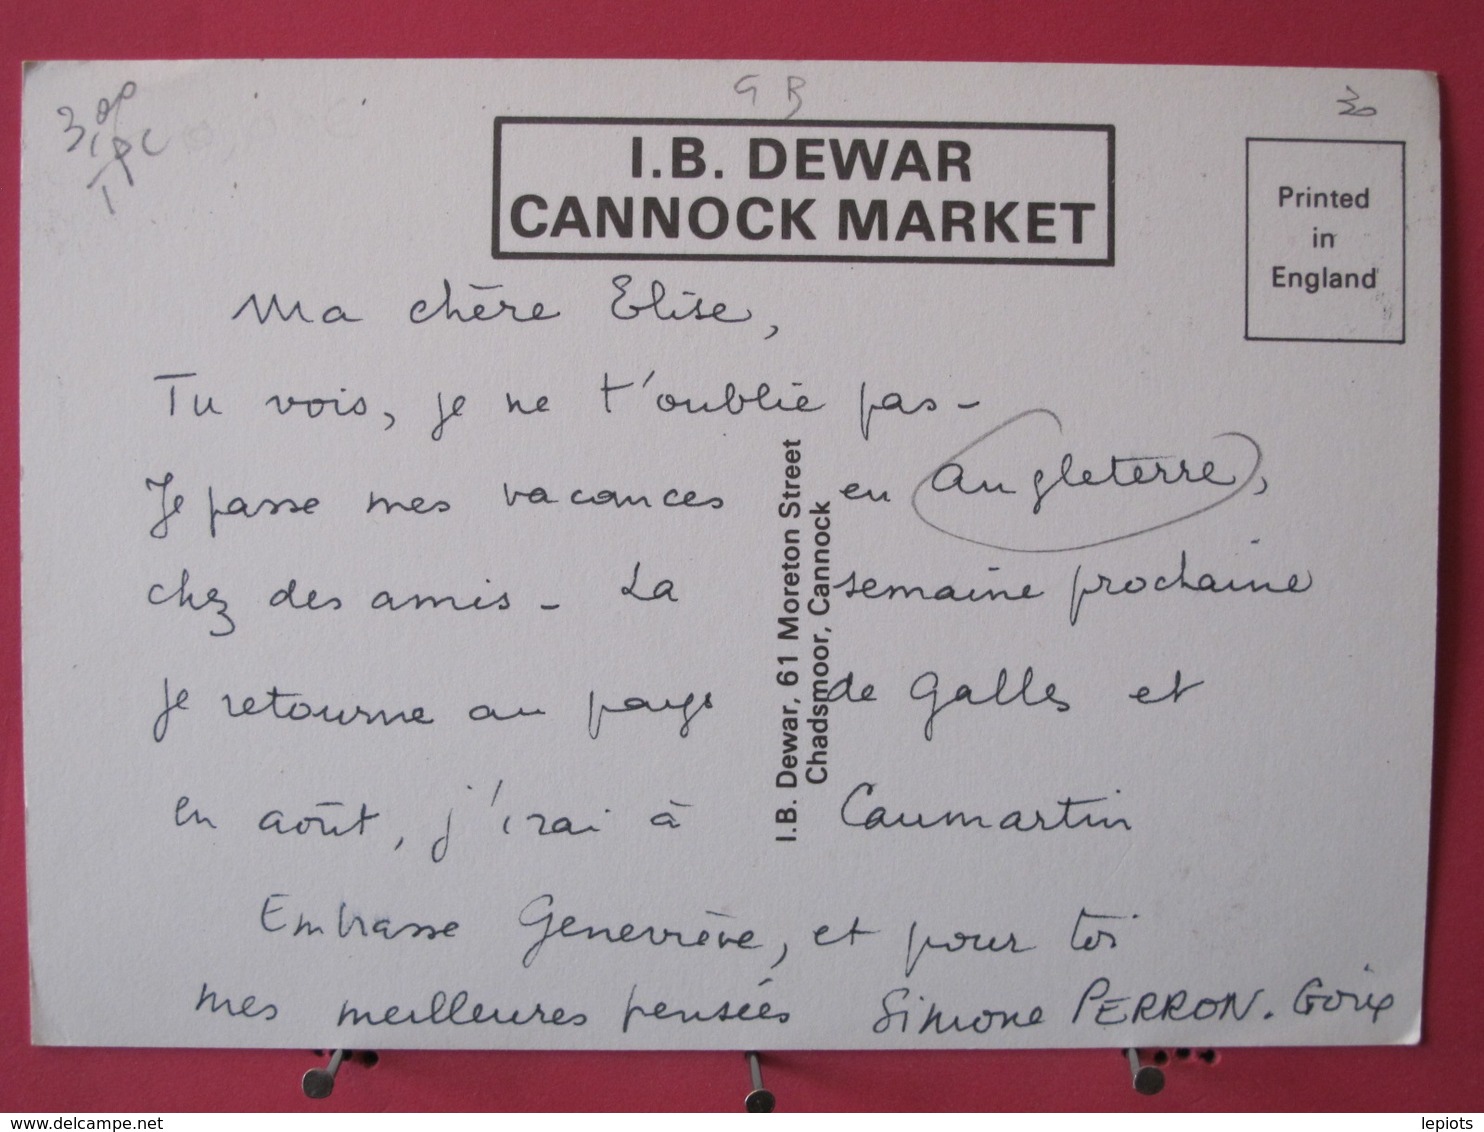 G B
30
I.B. DEWAR
CANNOCK MARKET
Printed
in
England
Ma chère Elise,
Tu vois, je ne t'oublie pas -
Je passe mes vacances en Angleterre,
chez des amis - La semaine prochaine
je retourne au pays de Galles et
en août, j'irai à Caumartin
Embrasse Geneviève, et pour toi
mes meilleures pensées Simone PERRON. Goix
I.B. Dewar, 61 Moreton Street
Chadsmoor, Cannock
delcampe.net
lepiots